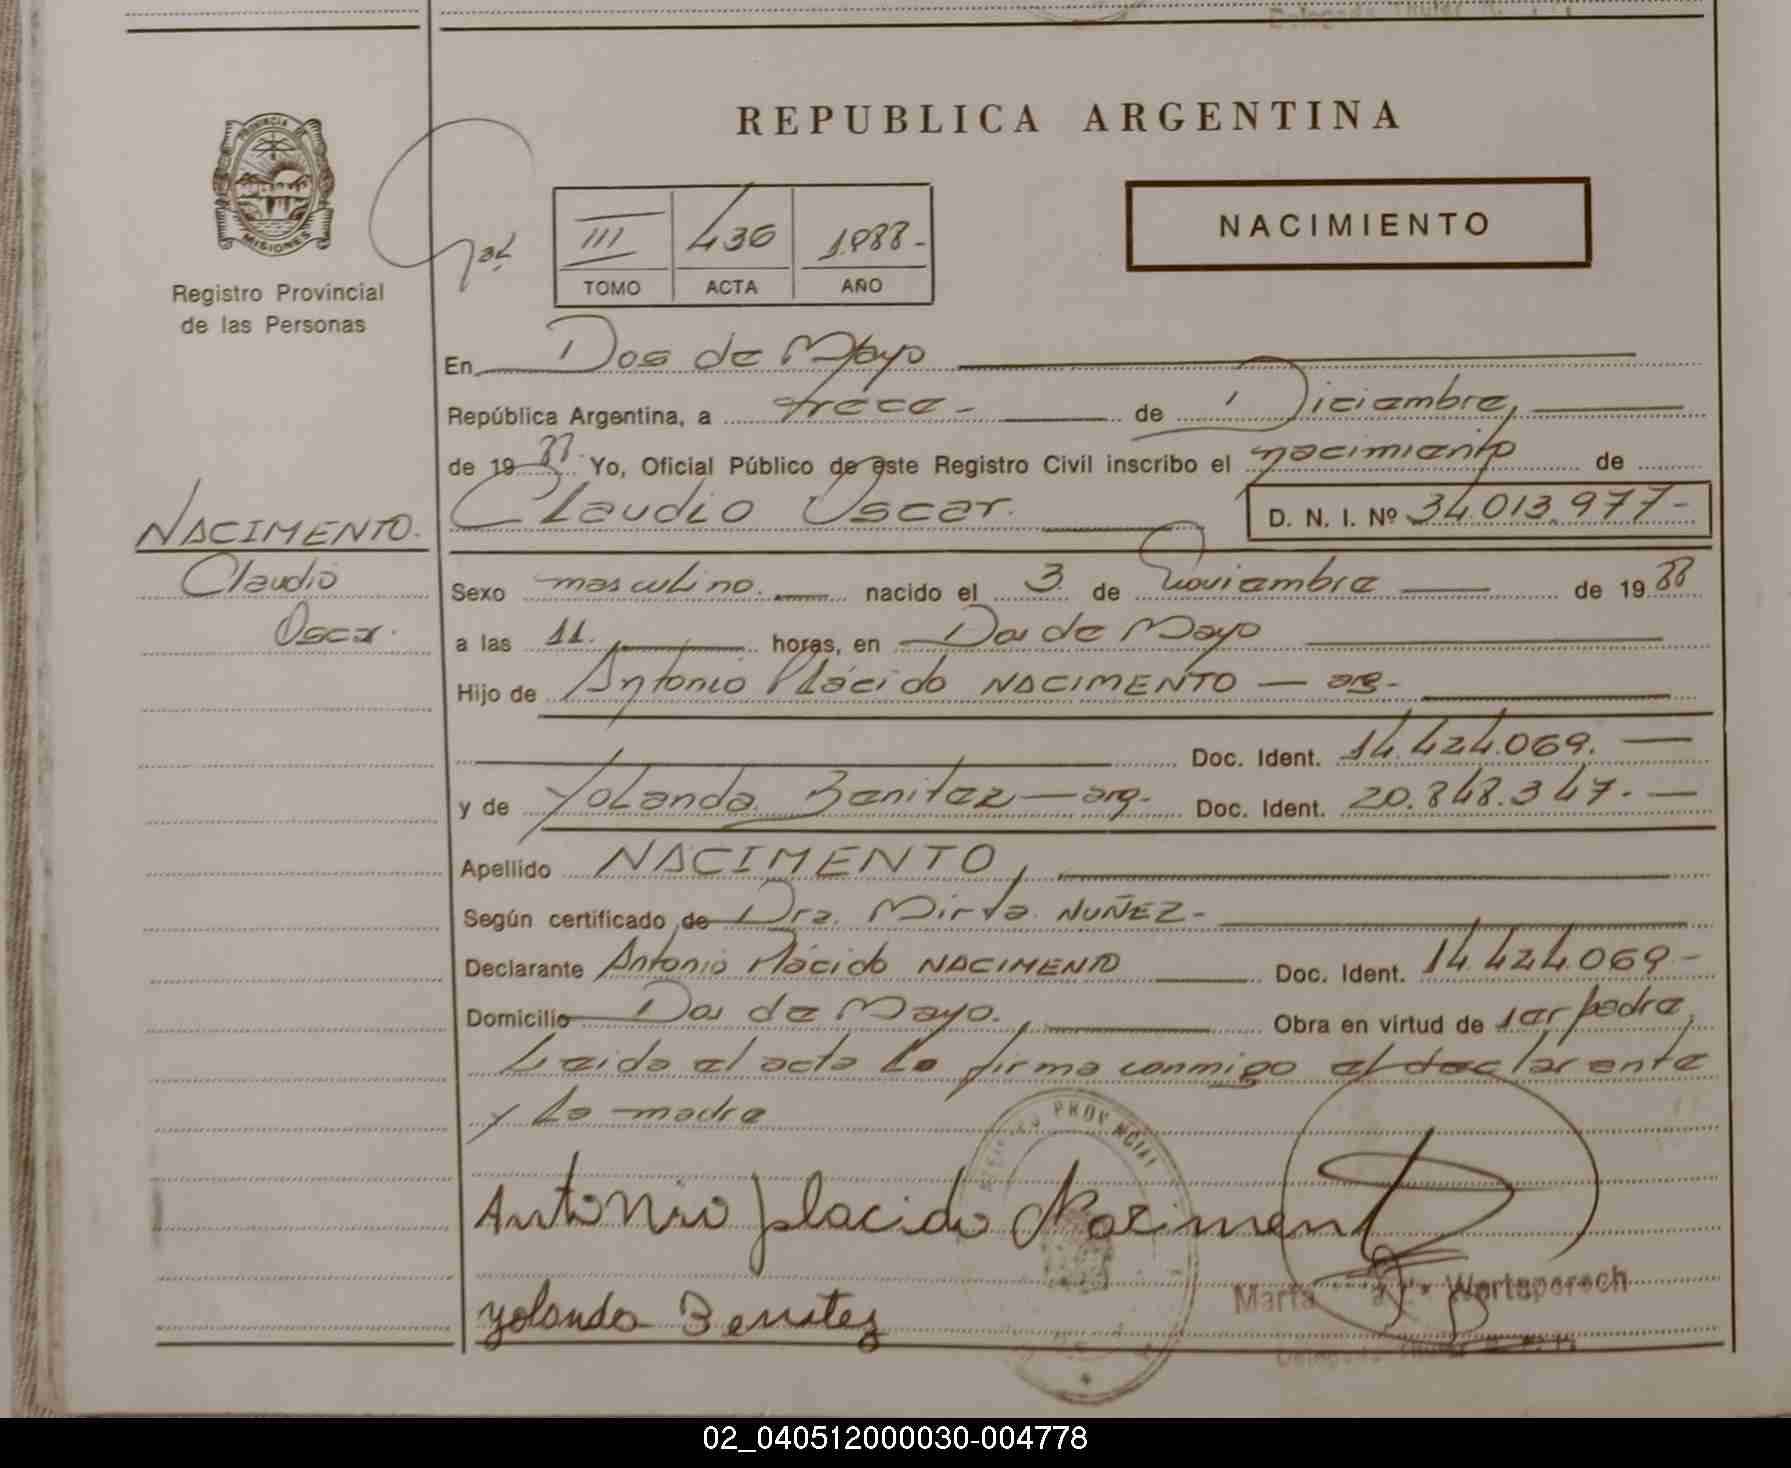 REPUBLICA ARGENTINA
PROVINCIA DE
MISIONES
Registro Provincial
de las Personas
III 436 1988.-
TOMO ACTA AÑO
NACIMIENTO
En Dos de Mayo
República Argentina, a trece - de Diciembre,
de 1988. Yo, Oficial Público de este Registro Civil inscribo el nacimiento de
Claudio Oscar. D. N. I. Nº 34.013.977-
NACIMENTO.
Claudio
Oscar.
Sexo masculino. nacido el 3 de Noviembre de 1988
a las 11. horas, en Dos de Mayo
Hijo de Antonio Plácido NACIMENTO — arg.-
Doc. Ident. 14.424.069. —
y de Yolanda Benitez — arg.- Doc. Ident. 20.848.347. —
Apellido NACIMENTO,
Según certificado de Dra. Mirta NUÑEZ-
Declarante Antonio Plácido NACIMENTO Doc. Ident. 14.424.069-
Domicilio Dos de Mayo. Obra en virtud de ser padre,
Leida el acta la firma conmigo el declarante
y la madre
Antonio placido Naciment
Yolanda Benitez
Marta Wartaperech
02_040512000030-004778